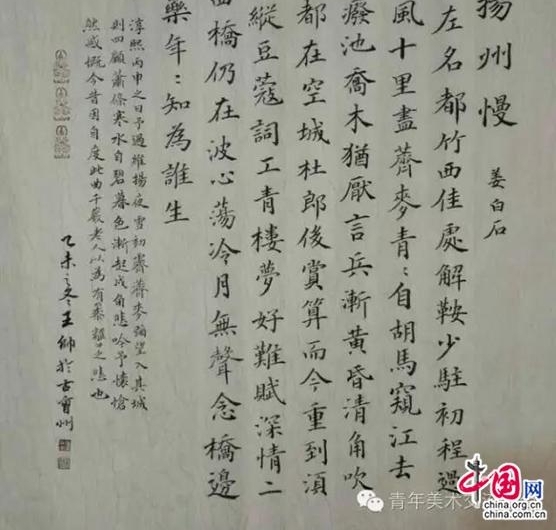 揚州慢
姜白石
左名都竹西佳處解鞍少駐初程過
風十里盡薺麥青:自胡馬窺江去
廢池喬木猶厭言兵漸黃昏清角吹
都在空城杜郎後賞算而今重到須
縱豆蔻詞工青樓夢好難賦深情二
橋仍在波心蕩冷月無聲念橋邊
藥年:知為誰生
淳熙丙申之日予過維揚夜雪初霽薺麥彌望入其城
則四顧蕭條寒水自碧暮色漸起戍角悲吟予懷愴
然感慨今昔因自度此曲千巖老人以為有黍離之悲也
乙未之冬王鄉於古
州
青年美术
中国网
www.china.com.cn
china.org.cn